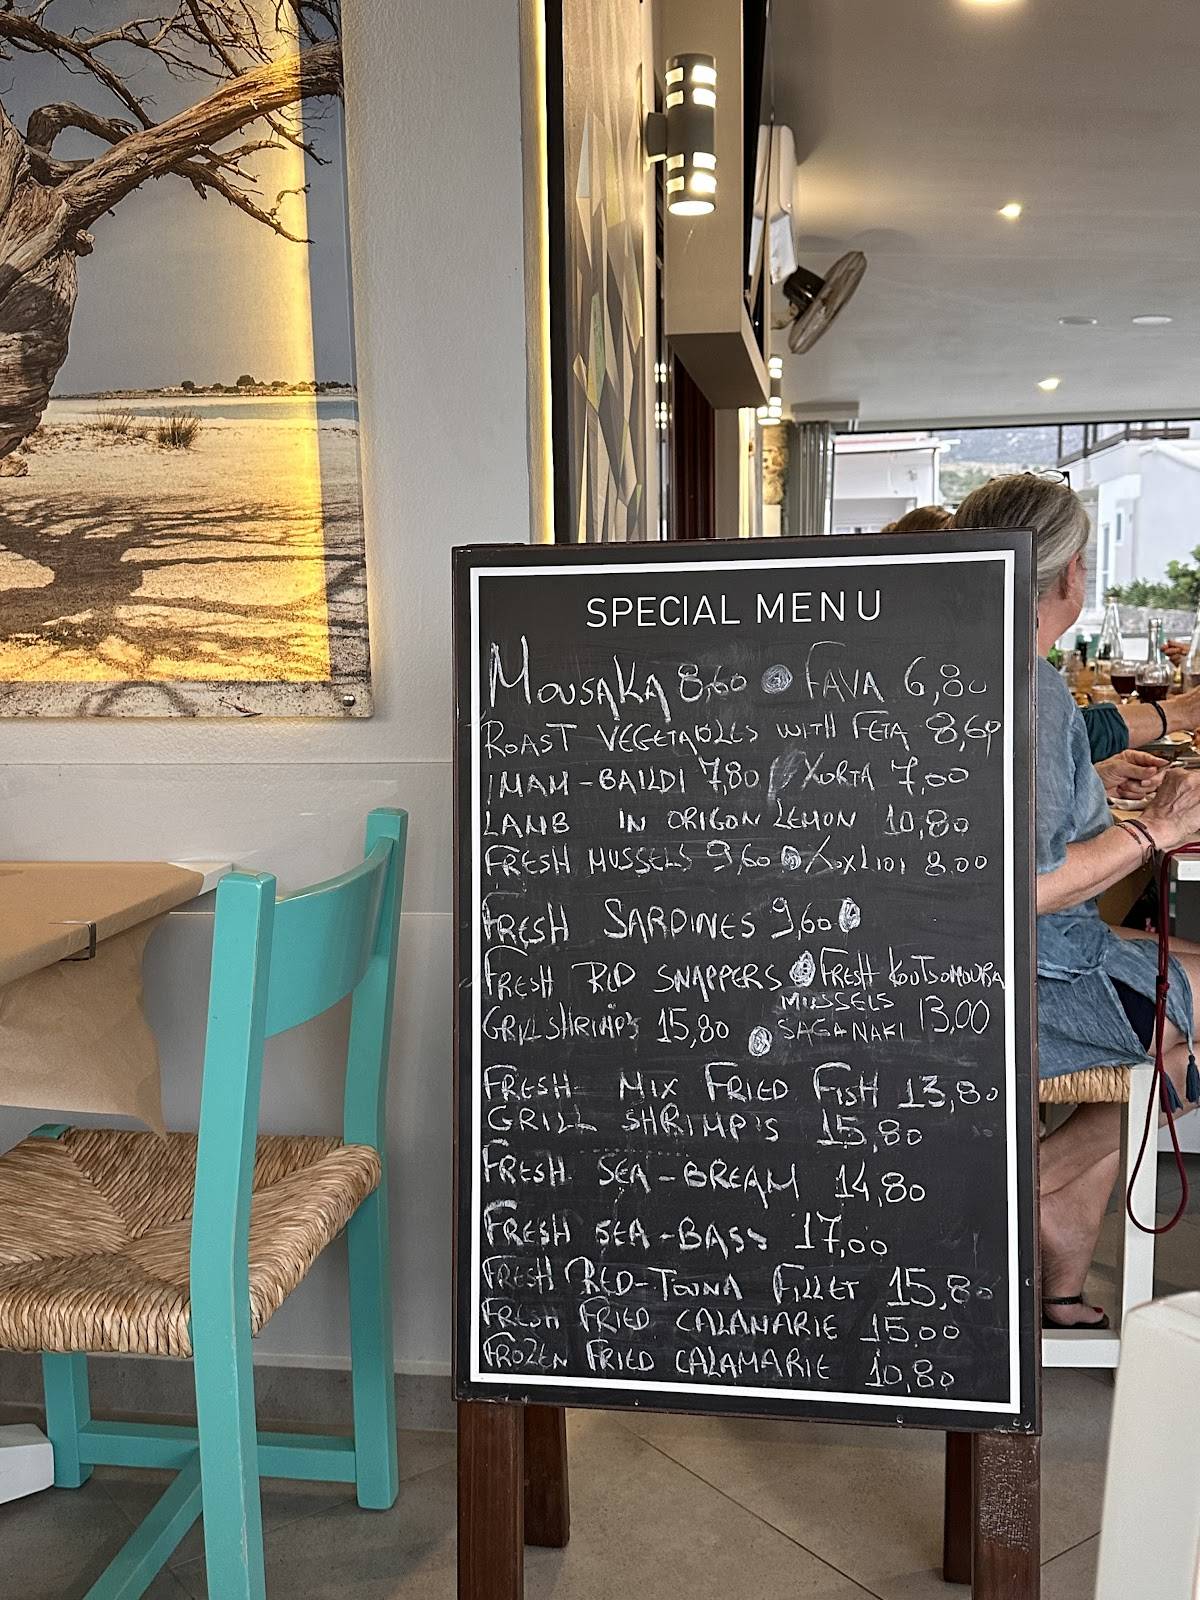 SPECIAL MENU
MOUSAKA 8,60 FAVA 6,80
ROAST VEGETABLES WITH FETA 8,60
IMAM-BAILDI 7,80 / XORTA 7,00
LAMB IN ORIGON LEMON 10,80
FRESH MUSSELS 9,60 XOXLIOI 8.00
FRESH SARDINES 9,60
FRESH RED SNAPPERS FRESH KOUTSOMOURA
GRILL SHRIMP'S 15,80 MUSSELS SAGANAKI 13,00
FRESH MIX FRIED FISH 13,80
GRILL SHRIMP'S 15,80
FRESH SEA-BREAM 14,80
FRESH SEA-BASS 17,00
FRESH RED-TOUNA FILLET 15,80
FRESH FRIED CALAMARIE 15.00
FROZEN FRIED CALAMARIE 10,80